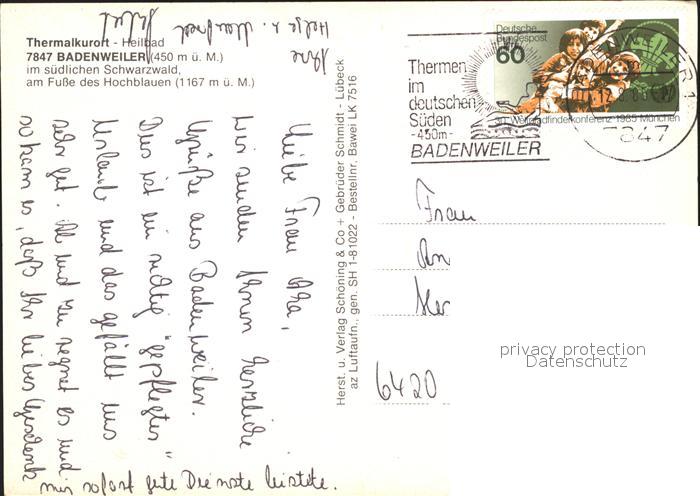 Thermalkurort - Heilbad
7847 BADENWEILER (450 m ü. M.)
im südlichen Schwarzwald,
am Fuße des Hochblauen (1167 m ü. M.)
Liebe Frau
wir senden Ihnen herzliche
Grüße aus Badenweiler.
Dies ist ein richtig "gepflegter"
Urlaub und das gefällt uns
sehr gut. Ab und zu regnet es und
so kam es, daß Ihr liebes Geschenk
mir sofort gute Dienste leistete.
Ihre
Helga u. Manfred
Herst. u. Verlag Schöning & Co + Gebrüder Schmidt - Lübeck
az Luftaufn., gen. SH 1-81022 - Bestellnr. Bawei LK 7516
Thermen
im
deutschen
Süden
-450m-
BADENWEILER
Deutsche
Bundespost
60
30. Weltpfadfinderkonferenz 1985 München
BADENWEILER 1
7847
Frau
An
Her
6420
privacy protection
Datenschutz